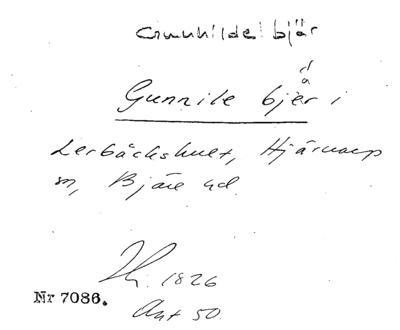 Gunnilde bjär
Gunnile bjer i
Lerbäckshult, Hjärnarp
sn, Bjäre hd.
1826
Nr 7086.
Ant 50.